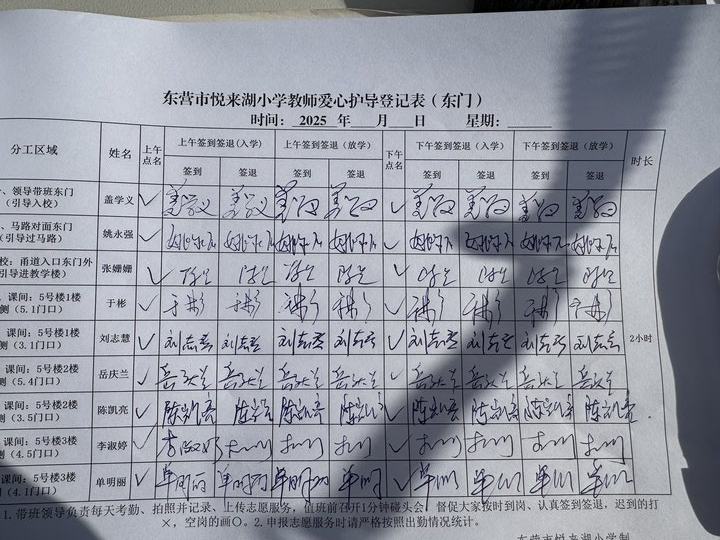 东营市悦来湖小学教师爱心护导登记表（东门）
时间： 2025 年 月 日 星期：
分工区域 姓名 上午点名 上午签到签退(入学) 上午签到签退（放学） 下午点名 下午签到签退（入学） 下午签到签退（放学） 时长
签到 签退 签到 签退 签到 签退 签到 签退
、领导带班东门（引导入校） 盖学义 ✓ 盖学义 盖学义 盖学义 盖学义 ✓ 盖学义 盖学义 盖学义 盖学义
、马路对面东门（引导过马路） 姚永强 ✓ 姚永强 姚永强 姚永强 姚永强 ✓ 姚永强 姚永强 姚永强 姚永强
校：甬道入口东门外引导进教学楼） 张姗姗 ✓ ✓
课间：5号楼1楼侧（5.1门口） 于彬 ✓ 于彬 于彬 于彬 于彬 ✓ 于彬 于彬 于彬 于彬
课间：5号楼1楼侧（3.1门口） 刘志慧 ✓ 刘志慧 刘志慧 刘志慧 刘志慧 ✓ 刘志慧 刘志慧 刘志慧 刘志慧 2小时
课间：5号楼2楼侧（5.4门口） 岳庆兰 ✓ 岳庆兰 岳庆兰 岳庆兰 岳庆兰 ✓ 岳庆兰 岳庆兰 岳庆兰 岳庆兰
课间：5号楼2楼侧（3.5门口） 陈凯亮 ✓ 陈凯亮 陈凯亮 陈凯亮 陈凯亮 ✓ 陈凯亮 陈凯亮 陈凯亮 陈凯亮
课间：5号楼3楼侧（4.5门口） 李淑婷 ✓ 李淑婷 ✓
课间：5号楼3楼侧（4.1门口） 单明丽 ✓ 单明丽 单明丽 单明丽 单明 ✓
1. 带班领导负责每天考勤、拍照并记录、上传志愿服务，值班前召开1分钟碰头会，督促大家按时到岗、认真签到签退，迟到的打
×，空岗的画〇。2. 申报志愿服务时请严格按照出勤情况统计。
东营市悦来湖小学制